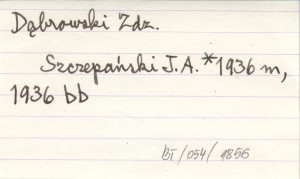 Dąbrowski Zdz.
Szczepański J.A. *1936 m,
1936 bb
BI/054/1856